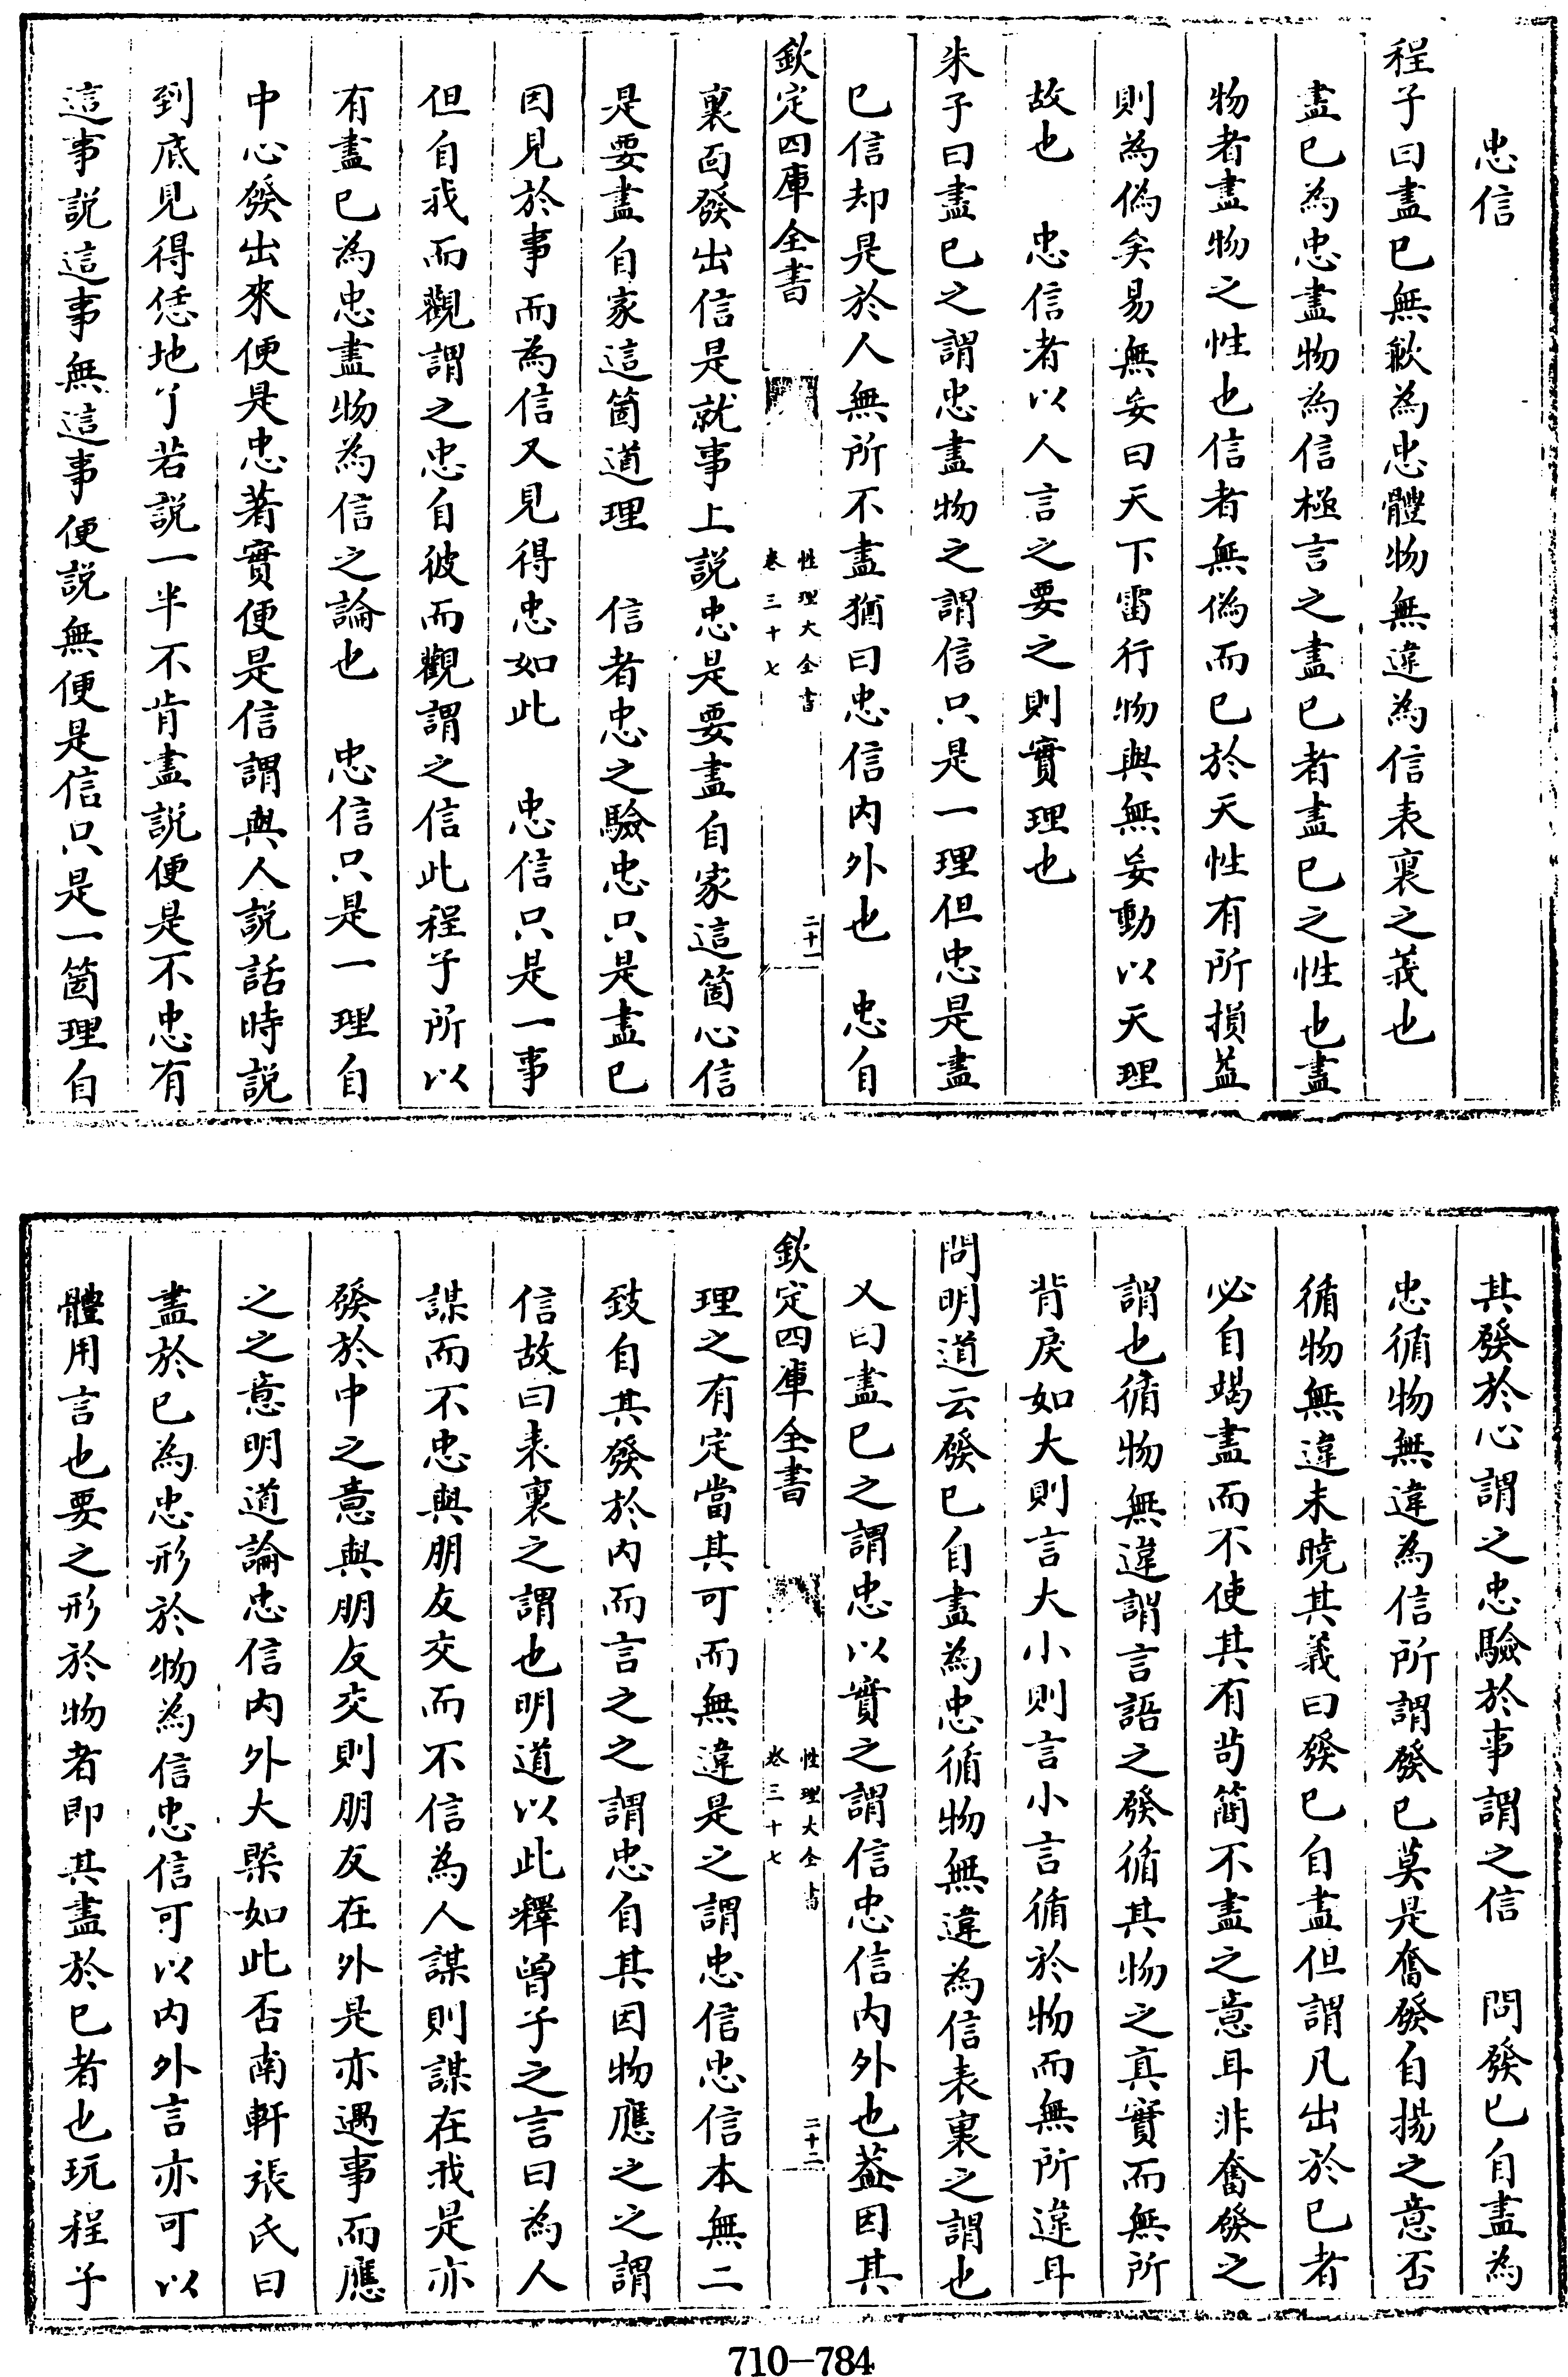 忠信
程子曰盡已無歉為忠體物無違為信表裏之義也
盡已為忠盡物為信極言之盡已者盡已之性也盡
物者盡物之性也信者無偽而已於天性有所損益
則為偽矣易無妄曰天下雷行物與無妄動以天理
故也　忠信者以人言之要之則實理也
朱子曰盡已之謂忠盡物之謂信只是一理但忠是盡
已信却是於人無所不盡猶曰忠信内外也　忠自
欽定四庫全書
性理大全書
卷三十七
二十一
裏面發出信是就事上說忠是要盡自家這箇心信
是要盡自家這箇道理　信者忠之驗忠只是盡已
因見於事而為信又見得忠如此　忠信只是一事
但自我而觀謂之忠自彼而觀謂之信此程子所以
有盡已為忠盡物為信之論也　忠信只是一理自
中心發出來便是忠著實便是信謂與人說話時說
到底見得恁地了若說一半不肯盡說便是不忠有
這事說這事無這事便說無便是信只是一箇理自
其發於心謂之忠驗於事謂之信　問發已自盡為
忠循物無違為信所謂發已莫是奮發自揚之意否
循物無違未曉其義曰發已自盡但謂凡出於已者
必自竭盡而不使其有苟簡不盡之意耳非奮發之
謂也循物無違謂言語之發循其物之真實而無所
背戾如大則言大小則言小言循於物而無所違耳
問明道云發已自盡為忠循物無違為信表裏之謂也
又曰盡已之謂忠以實之謂信忠信内外也葢因其
欽定四庫全書
性理大全書
卷三十七
二十二
理之有定當其可而無違是之謂忠信忠信本無二
致自其發於内而言之之謂忠自其因物應之之謂
信故曰表裏之謂也明道以此釋曾子之言曰為人
謀而不忠與朋友交而不信為人謀則謀在我是亦
發於中之意與朋友交則朋友在外是亦遇事而應
之之意明道論忠信内外大槩如此否南軒張氏曰
盡於已為忠形於物為信忠信可以内外言亦可以
體用言也要之形於物者即其盡於已者也玩程子
710-784